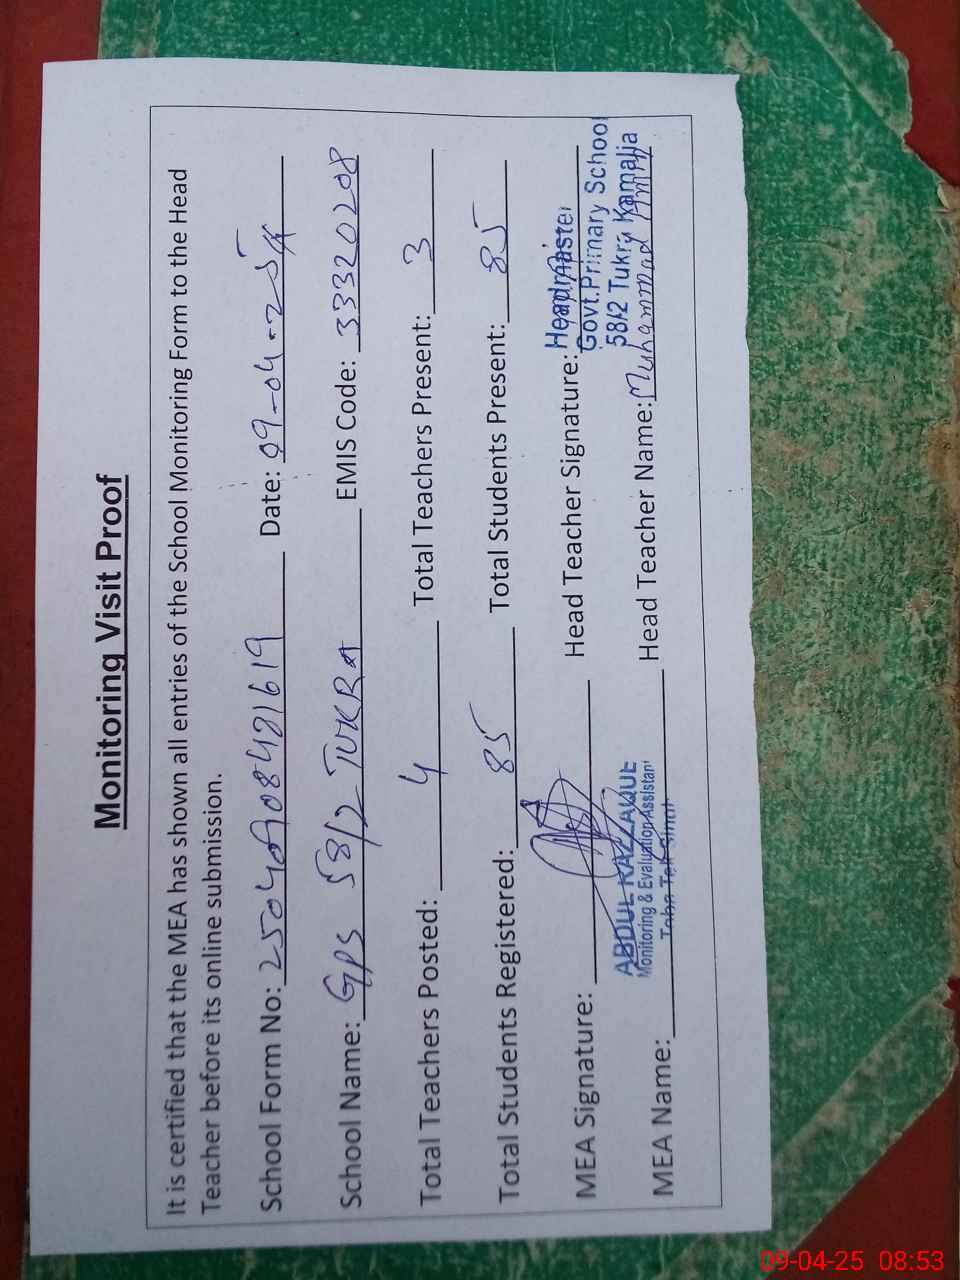 Monitoring Visit Proof
It is certified that the MEA has shown all entries of the School Monitoring Form to the Head
Teacher before its online submission.
School Form No: 250409084821619 Date: 09-04-25
School Name: GPS 58/2 TUKRA EMIS Code: 33320208
Total Teachers Posted: 4 Total Teachers Present: 3
Total Students Registered: 85 Total Students Present: 85
MEA Signature: Head Teacher Signature: Headmaster
Govt.Primary School
58/2 Tukry Kamalia
ABDUL RAZZAQUE
Monitoring & Evaluation Assistant
Toba Tek Singh
MEA Name: Head Teacher Name: Muhammad Amin
09-04-25 08:53